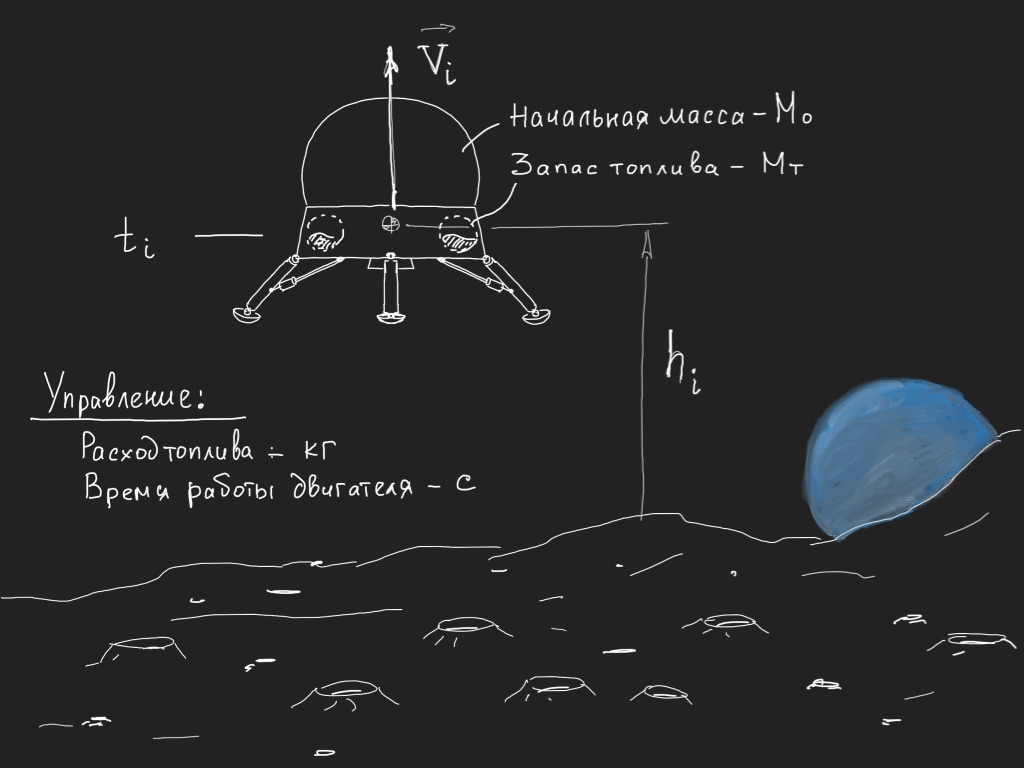 V⃗i
Начальная масса – М₀
Запас топлива – Мт
ti
hi
Управление:
Расход топлива – кг
Время работы двигателя – с